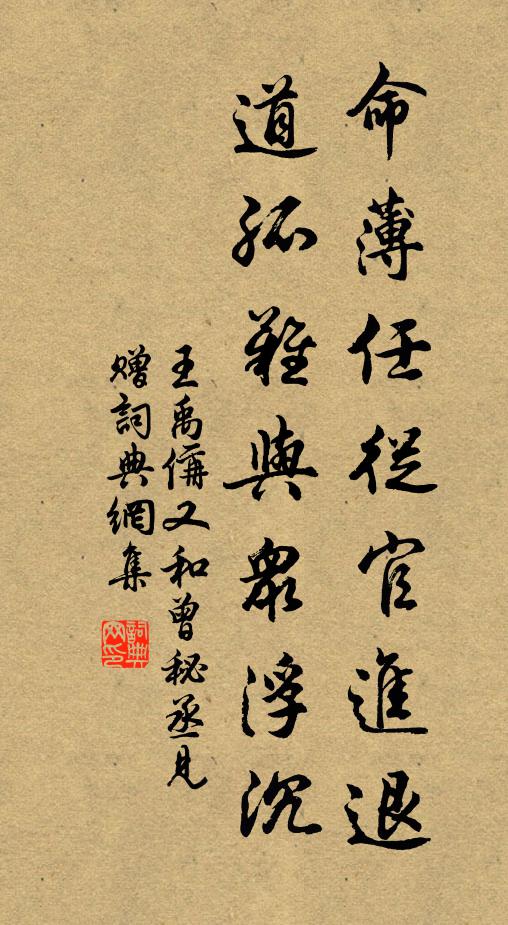 命薄任從官進退
道孤難與衆浮沉
王禹偁又和曾秘丞見
贈詞典網集
詞典網印